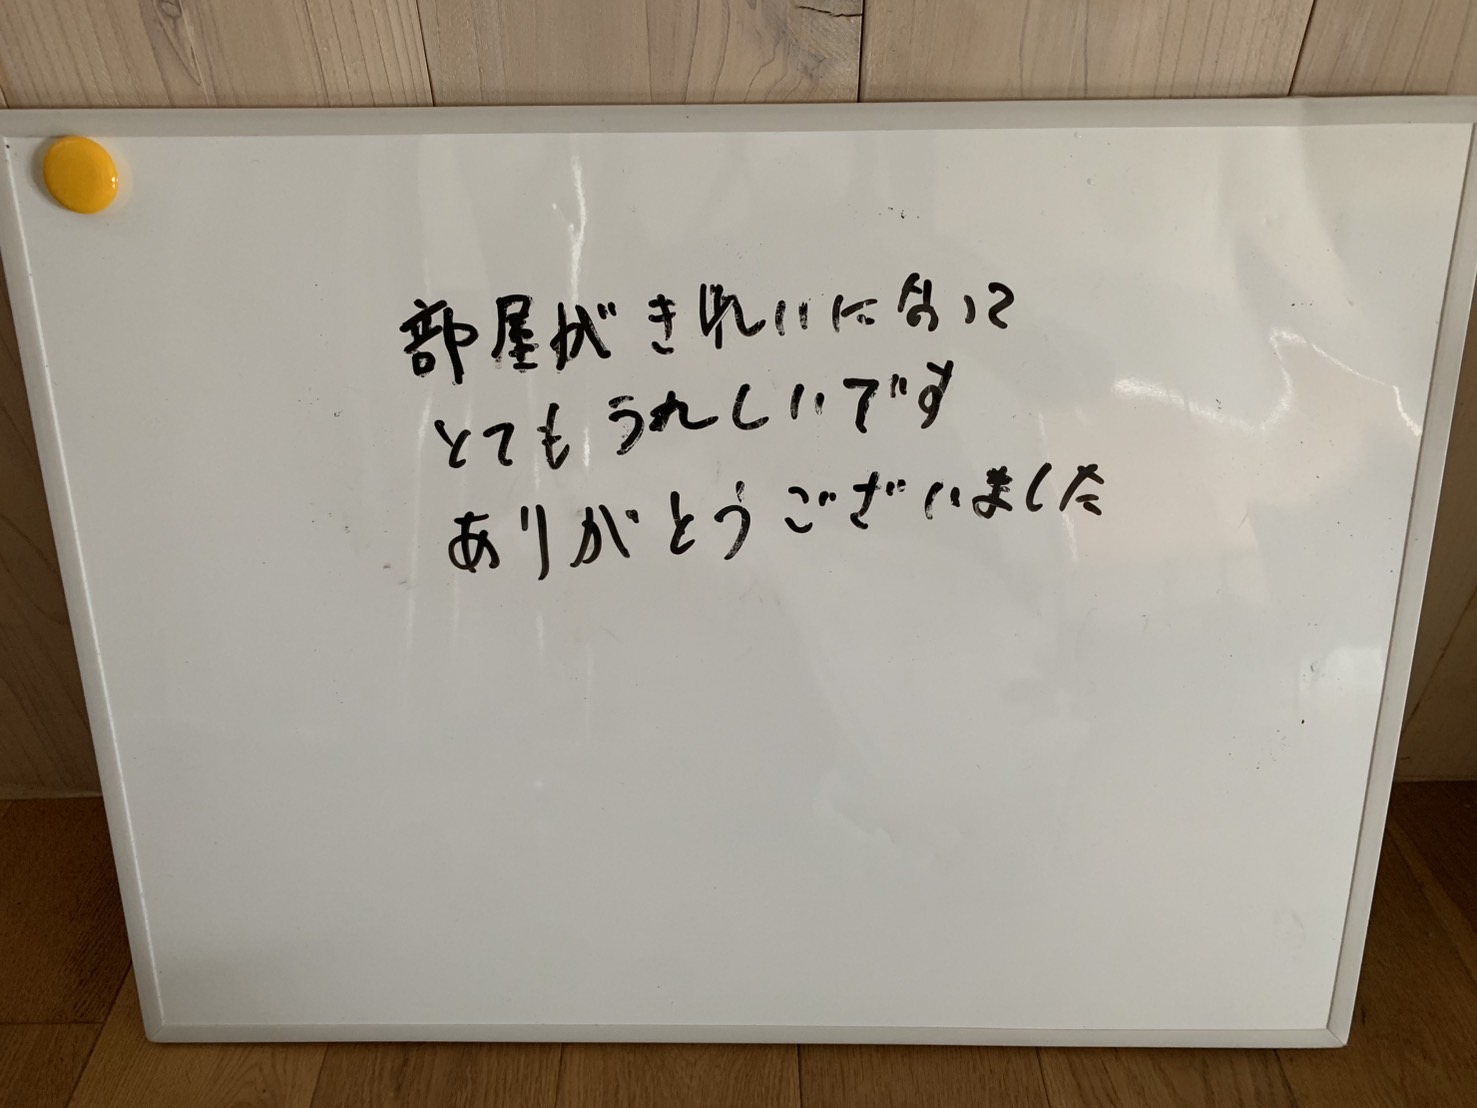 部屋がきれいになって
とてもうれしいです
ありがとうございました